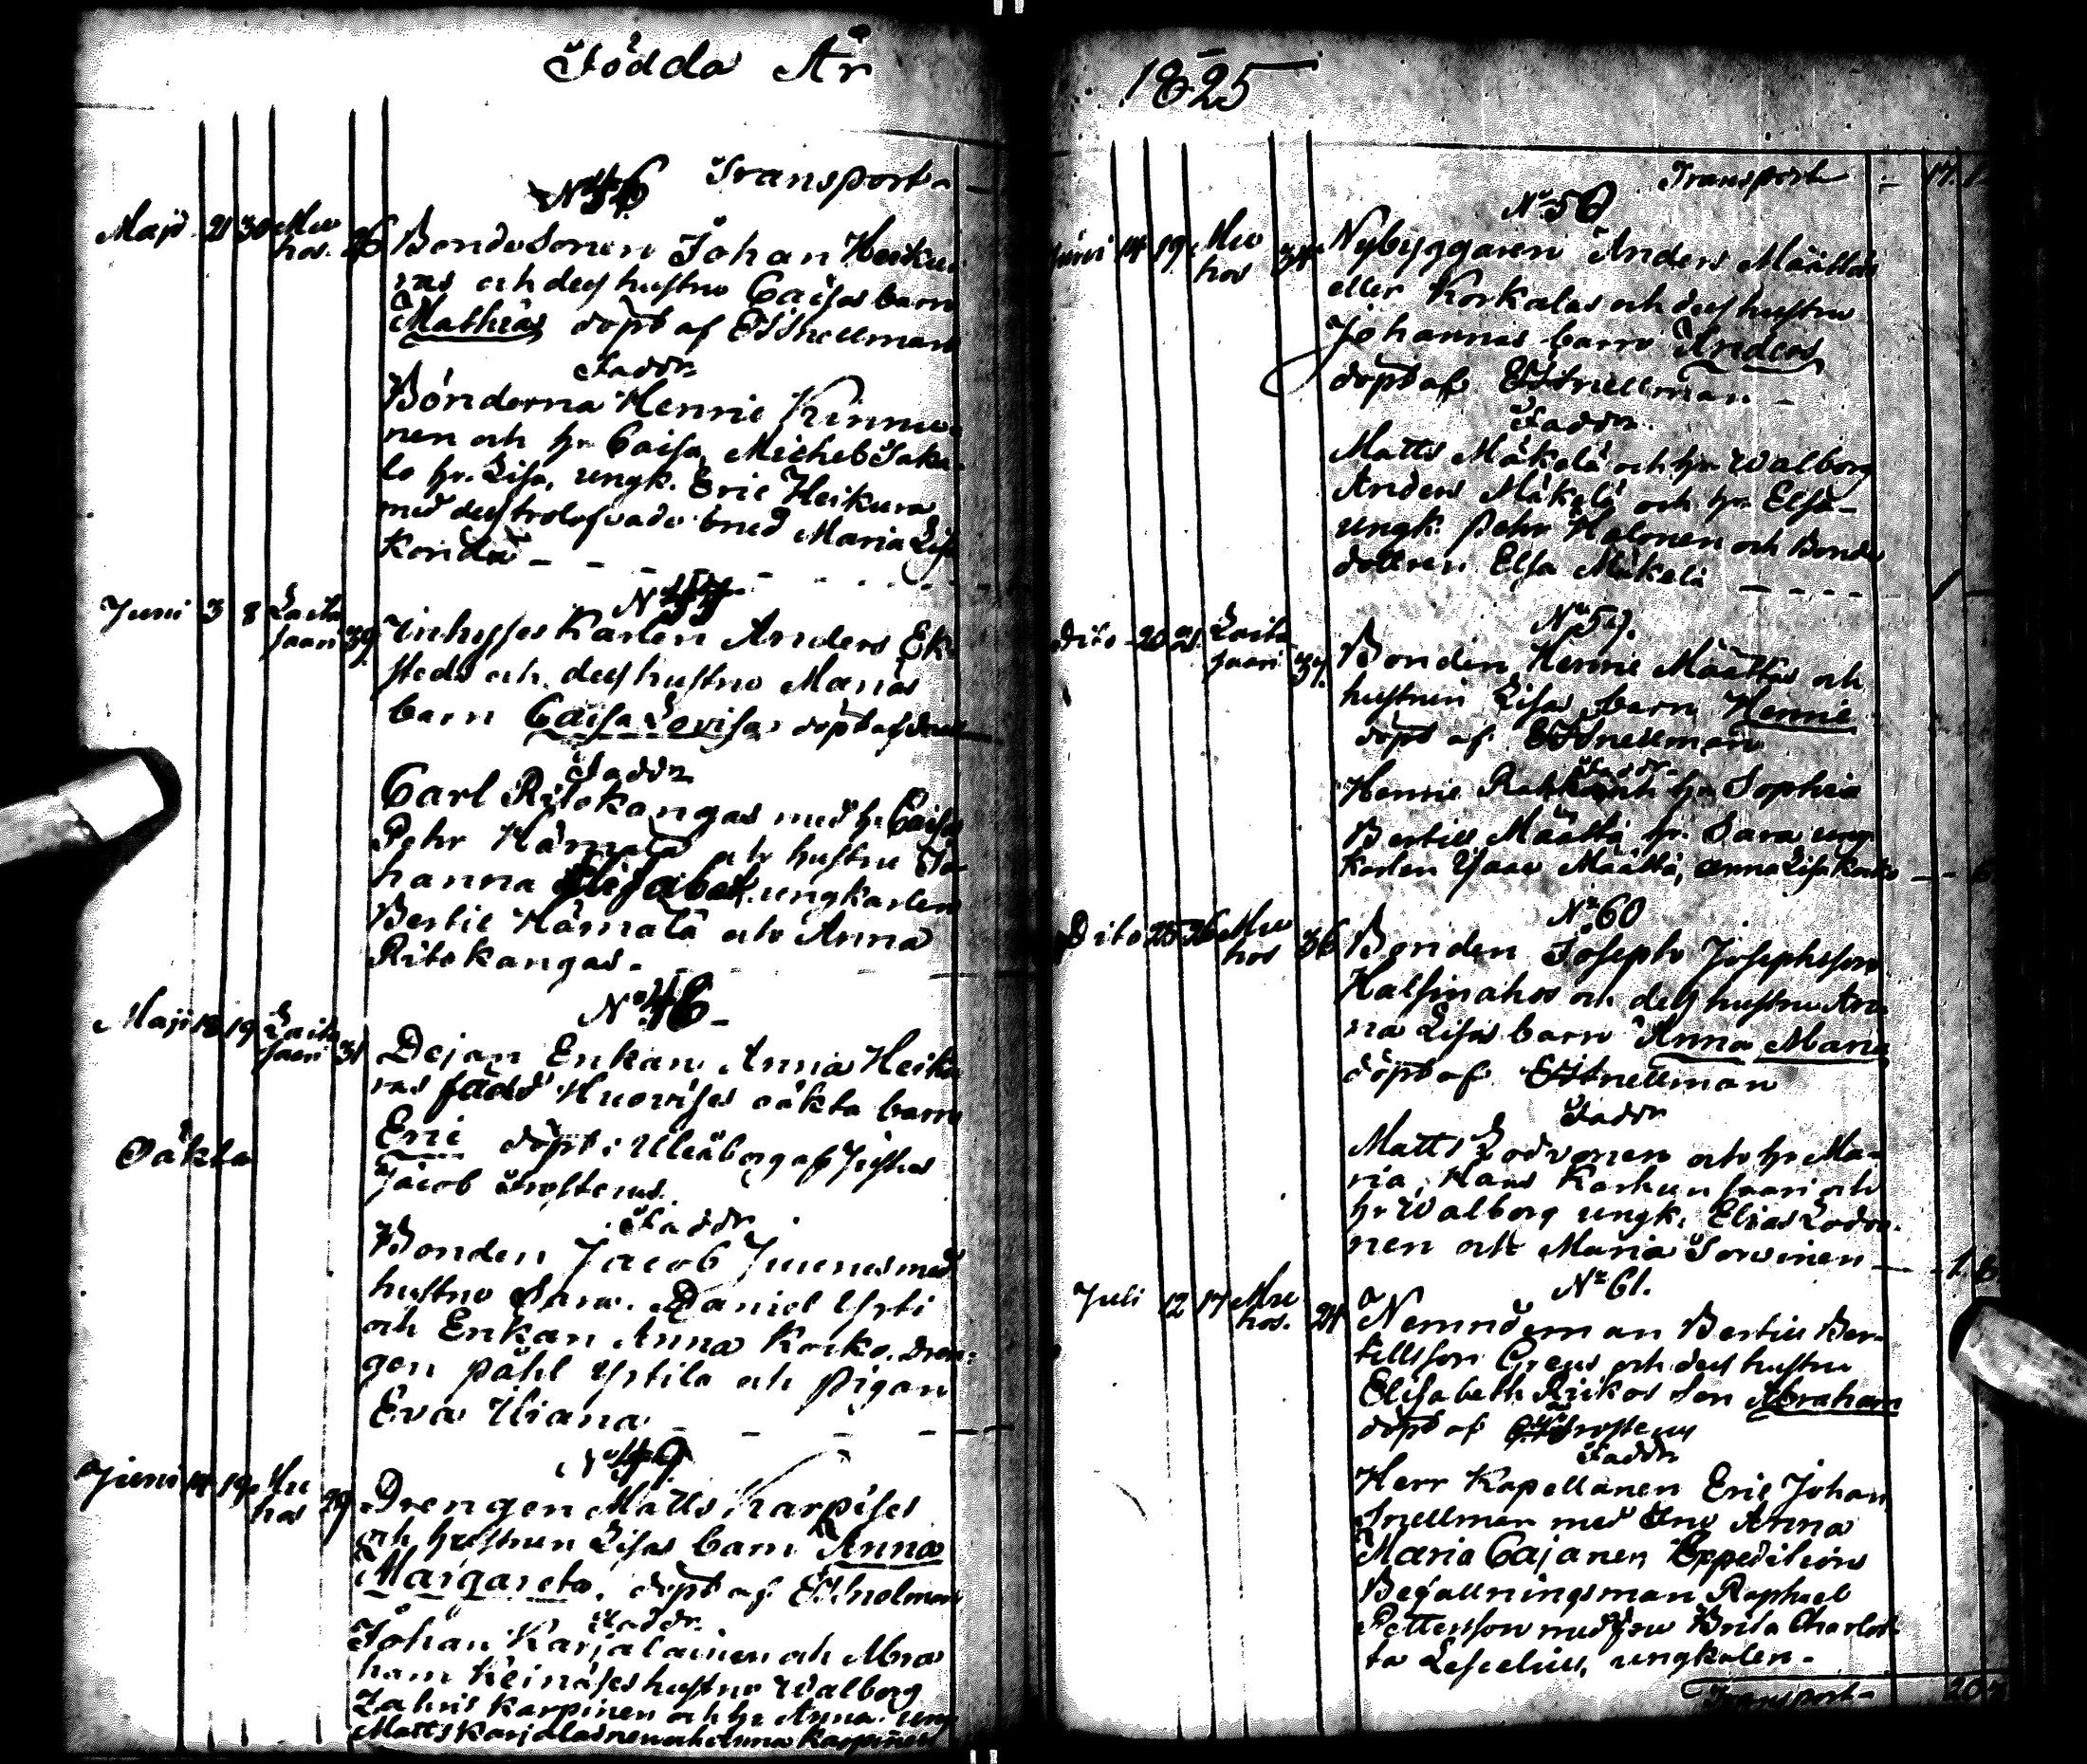 Födda År
Transport-
No 46
Maji 21 30 Mu
hos. 26 Bondesonen Johan Heiku-
ras och dess hustru Caisas barn
Mathias döpt af EJSnellman
Faddr
Bönderna Henric Kinnu-
nen och hr Caisa, Michel
lo hr. Lisa, ungk. Eric Heikura
med dess trolofvade brud Maria Lisa
Konda -
No 47
Juni 3 8 Laita
saari 39 Inhyses Karlen Anders Ek-
steds och dess hustru Marias
barn Caisa Lovisa döpt af
Faddr
Carl Ritokangas med hr Caisa
Pehr Hämälä och hustru Jo-
hanna Elisabet, ungkarlen
Bertil Hämälä och Anna
Ritokangas.
No 48
Maji 18 19 Laita
saari 31 Dejan Enkan Anna Heiku
ras född Huovises oäkta barn
Oäkta
Eric döpt i Uleåborg af
Jacob Frosterus.
Faddr
Bonden Jacob Juurus med
hustru Sara. Daniel Yrti
och Enkan Anna Korko. Dren-
gen Påhl Yrtila och Pigan
Eva Iliana
No 49
Juni 14 19 Mu
hos 29 Drengen Matts Karpises
och hustrun Lisas barn Anna
Margareta, döpt af EJSnelman
Faddr.
Johan Karjalainen och Abra
ham Keinäses hustru Walborg
Zachris Karpinen och hr Anna. ung
Matts Karjalainen och Anna Karpinen
1825
Transport - 17. 1
No 58
Juni 14 19 Mu
hos 34 Nybyggaren Anders Määttäs
eller Korkalas och dess hustru
Johannas barn Anders
döpt af EJSnellman -
Faddr.
Matts Mäkelä och hr Walborg
Anders Mäkelä och hr Elsa-
ungk. Pehr Halonen och Bonde
dottren Elsa Mäkelä
No 59.
Dito 20 21 Laita
saari 37. Bonden Henric Määttäs och
hustrun Lisas barn Henric
döpt af EJSnellman
Faddr.
Henric och hr Sophia
Bertill Määttä, hr. Sara ung
karlen Isaac Määttä, Anna Lisa Korko
No 60
Dito 25 26 Mu
hos 36 Bonden Joseph Josephsson
Halsinahos och dess hustru An-
na Lisas barn Anna Maria
döpt af EJSnellman
Faddr
Matts Lodvonen och hr Ma-
ria, Hans Karhunsaari och
hr Walborg ungk. Elias Lodvo-
nen och Maria Sorvinen
No 61.
Juli 12 17 Mu
hos. 24 Nemndeman Bertill Ber-
tillsson Greus och dess hustru
Elisabeth Riikos son Abraham
döpt af Frosterus
Faddr
Herr Kapellanen Eric Johan
Snellman med Fru Anna
Maria Cajanen, Expeditions
Befallningsman Raphael
Pettersson med fru Brita Charlot-
ta Lescelius, ungkalen-
Transport-